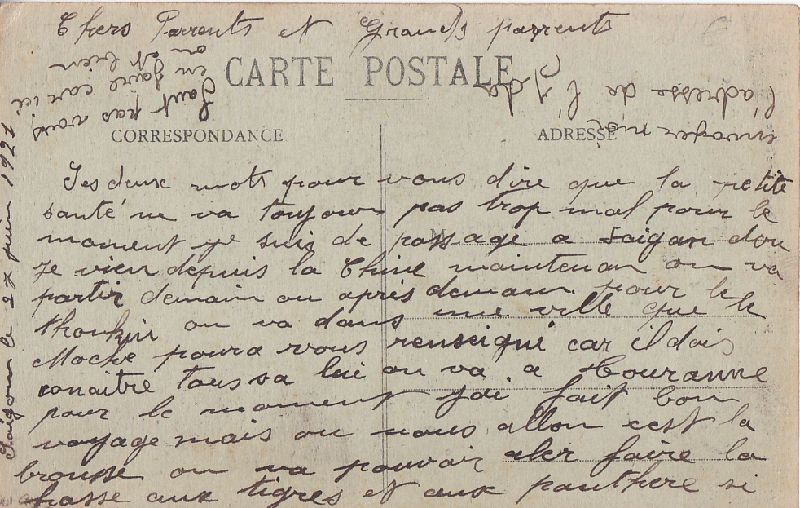 Chers Parrents et Grands parrents
CARTE POSTALE
CORRESPONDANCE
ADRESSE
envoyer moi
l'adresse de l'Ada
Faut pas vous
en faire car ici
on est bien
Saigon le 27 juin 1921
Ses deux mots pour vous dire que la petite
santé ne va toujour pas trop mal pour le
moment je suis de passage a Saigan dou
je vien depuis la Chine maintenan on va
partir demain ou après demain pour le
thonkin on va dans une ville que le
Moché poura vous renseigné car il dois
conaitre tous sa lui on va a Touranne
pour le moment j'ai fait bon
voyage mais ou nous allon cest la
brousse on va pouvoir aler faire la
chasse aux tigres et aux panthere si